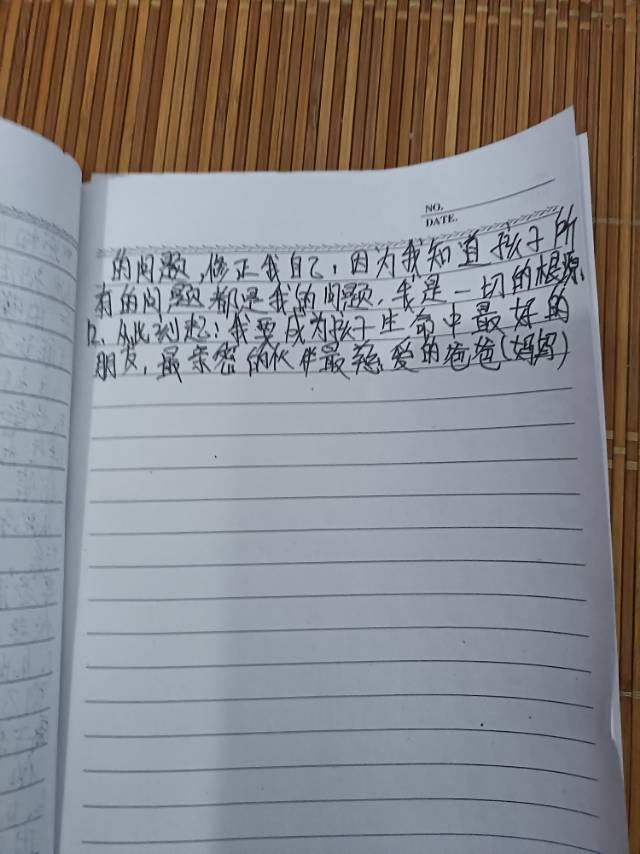 NO.
DATE.
的问题,修正我自己,因为我知道孩子所
有的问题都是我的问题,我是一切的根源
12、从此刻起:我要成为孩子生命中最好的
朋友,最亲密的伙伴最慈爱的爸爸(妈妈)